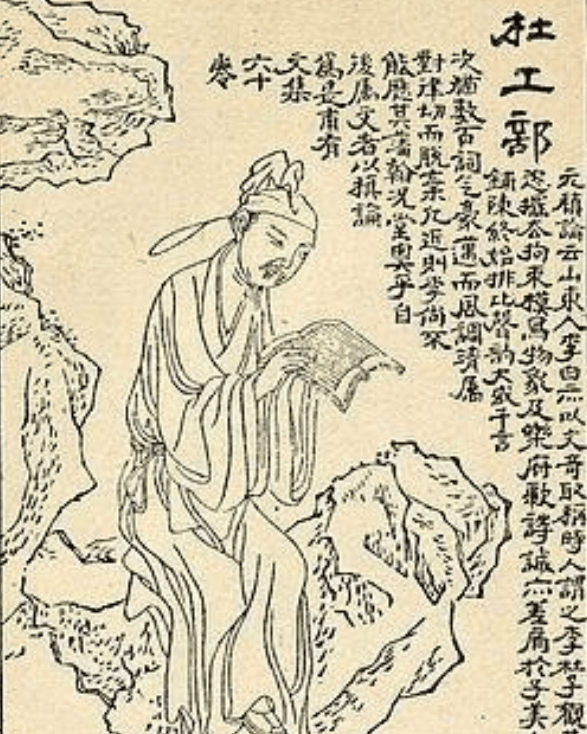 杜工部
元稹論云山東人李白亦以文奇取稱時人謂之李杜予觀
恣擺去拘束摸寫物象及樂府歌詩誠亦差肩於子美
鋪陳終始排比聲韵大或千言
次猶數百詞气豪邁而風調清屬
對律切而脫棄凡近則李尚不
能歷其藩翰況堂奧乎自
後屬文者以稹論
爲是甫有
文集
六十
卷